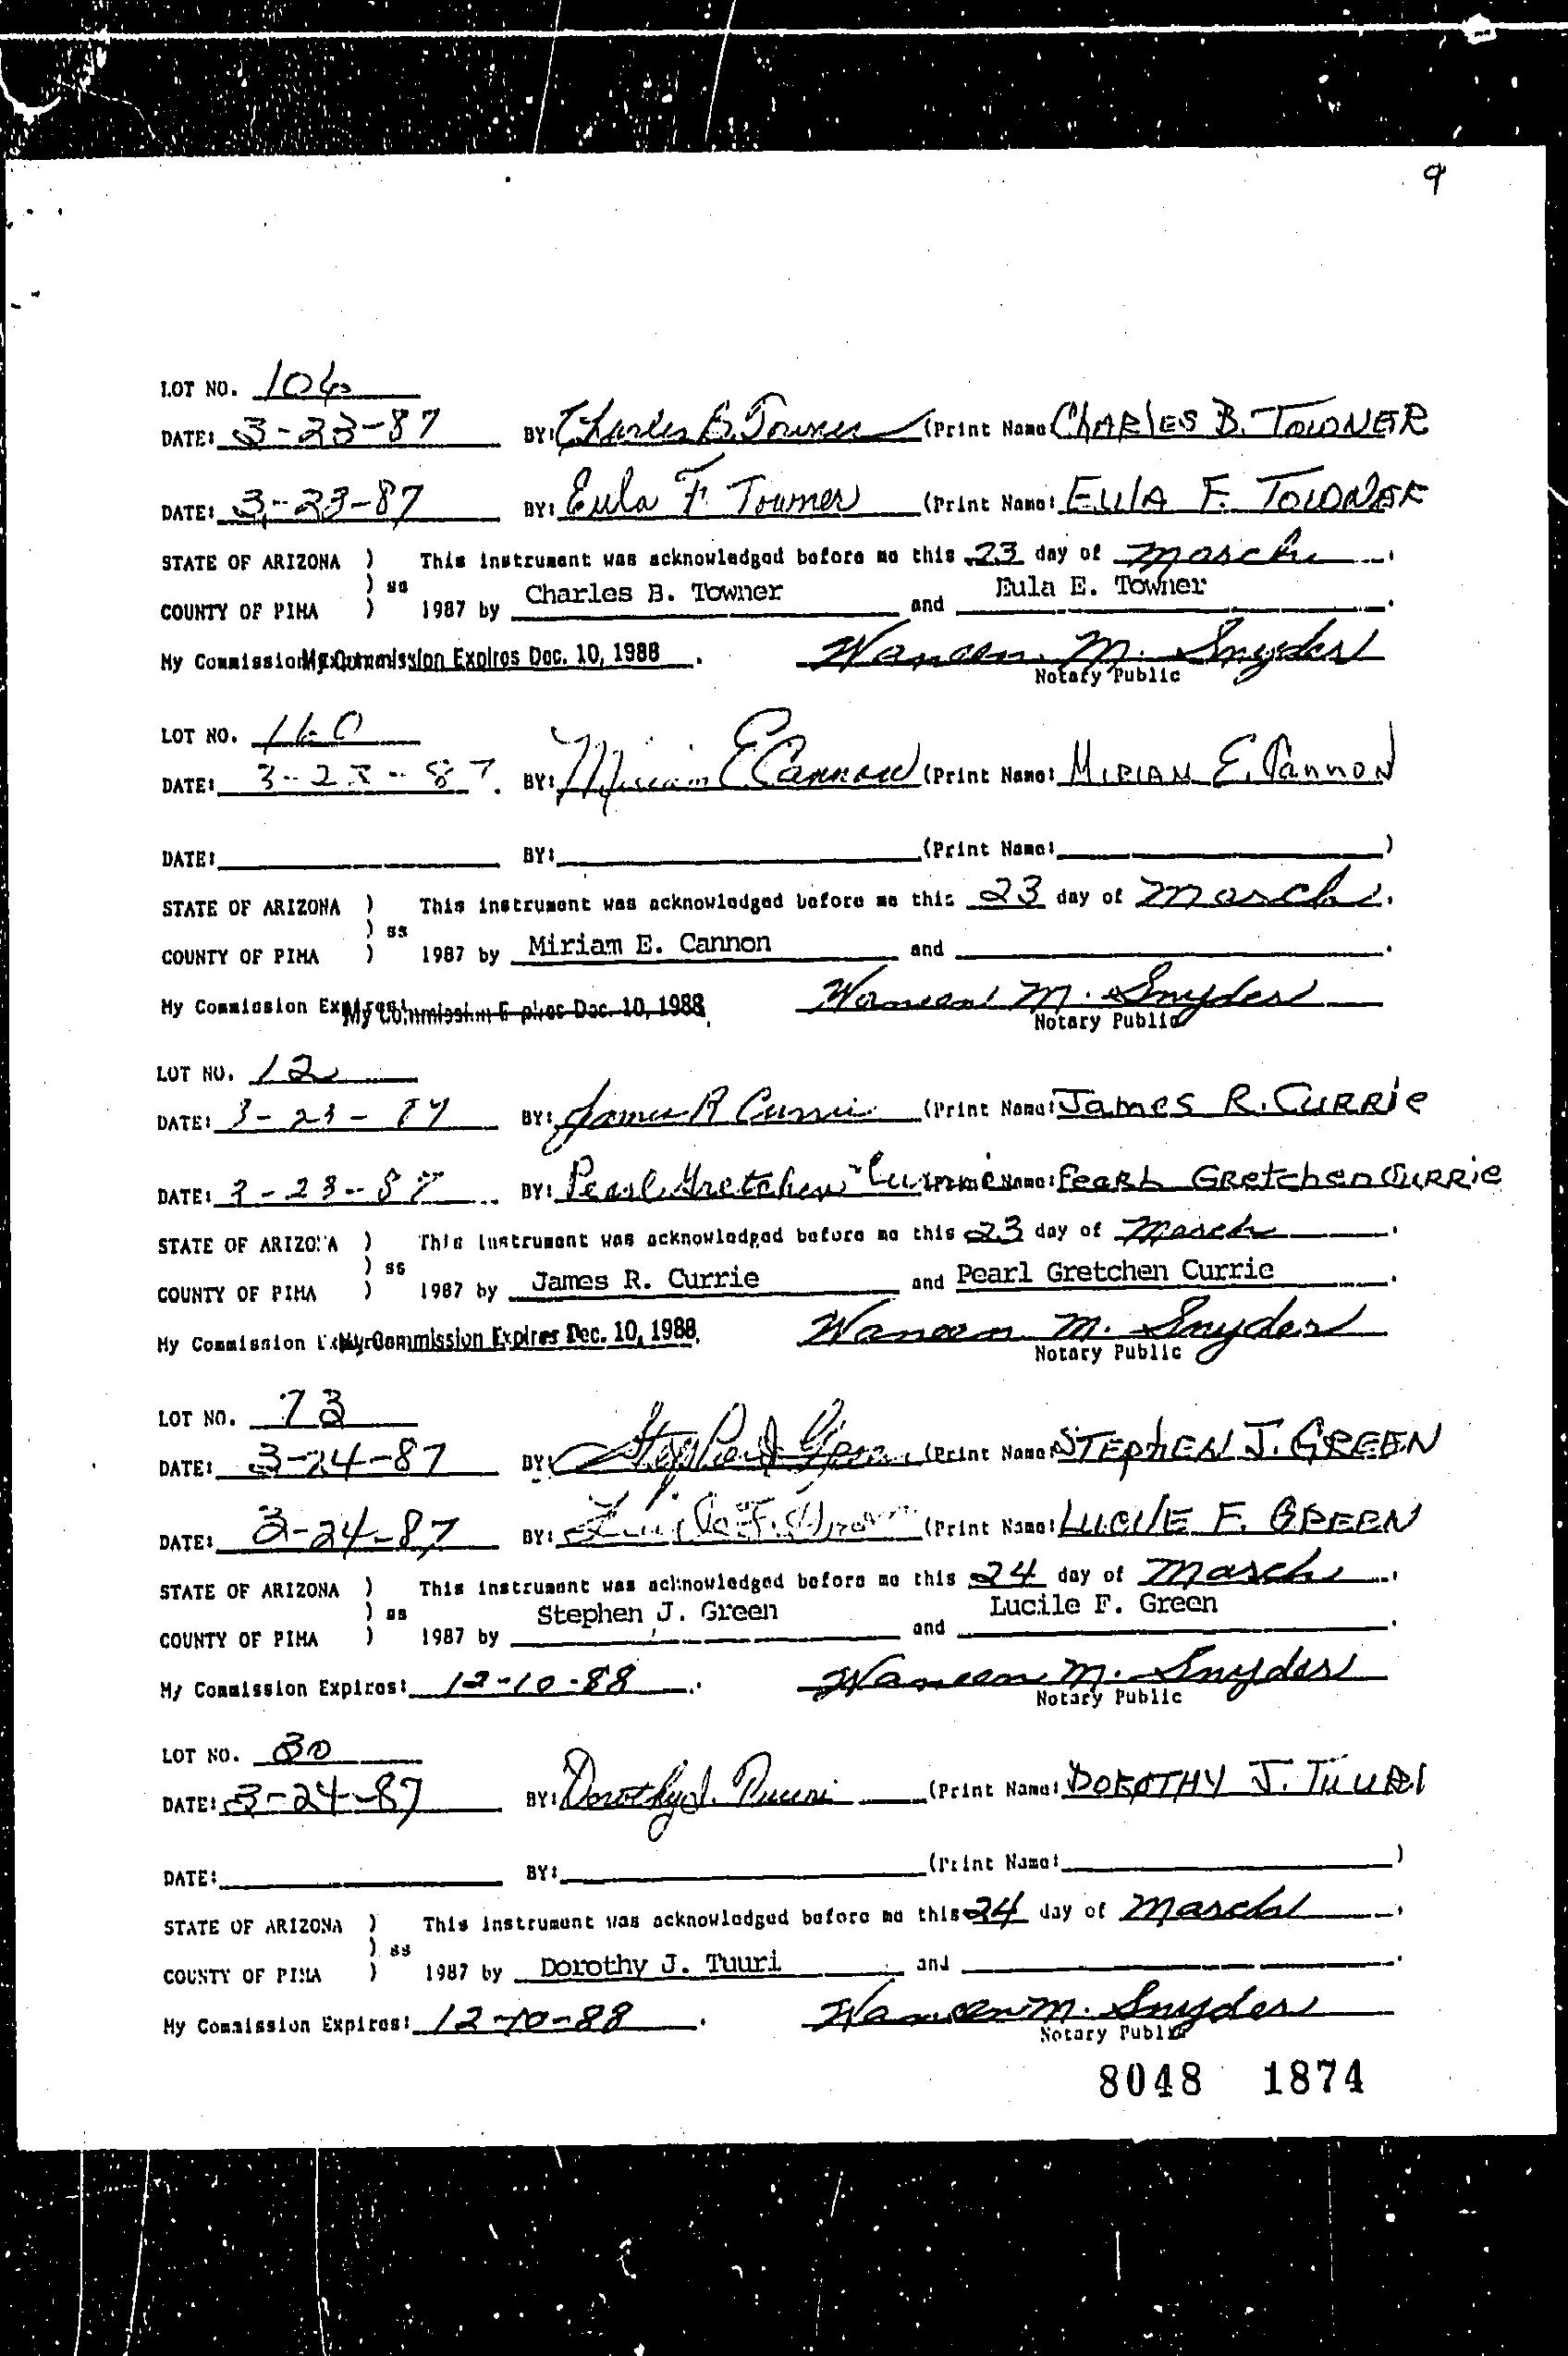 9
LOT NO. 106
DATE: 3-23-87 BY: Charles B. Towner (Print Name: CHARLES B. TOWNER
DATE: 3-23-87 BY: Eula F. Towner (Print Name: EULA F. TOWNER
STATE OF ARIZONA ) This instrument was acknowledged before me this 23 day of March,
) ss
COUNTY OF PIMA ) 1987 by Charles B. Towner and Eula E. Towner.
My Commission My Commission Expires Dec. 10, 1988.
M. Snyder
Notary Public
LOT NO. 160
DATE: 3-23-87. BY: Miriam E Cannon (Print Name: MIRIAM E. Cannon
DATE: BY: (Print Name: )
STATE OF ARIZONA ) This instrument was acknowledged before me this 23 day of March,
) ss
COUNTY OF PIMA ) 1987 by Miriam E. Cannon and .
My Commission Expires: My Commission Expires Dec. 10, 1988.
M. Snyder
Notary Public
LOT NO. 12
DATE: 3-23-87 BY: James R Currie (Print Name: James R. CURRie
DATE: 3-23-87 BY: Pearl Gretchen Currie (Print Name: PeaRL GRetchen CURRie
STATE OF ARIZONA ) This instrument was acknowledged before me this 23 day of March,
) ss
COUNTY OF PIMA ) 1987 by James R. Currie and Pearl Gretchen Currie.
My Commission My Commission Expires Dec. 10, 1988.
M. Snyder
Notary Public
LOT NO. 73
DATE: 3-24-87 BY: Stephen J Green (Print Name: STEPhEN J. GREEN
DATE: 3-24-87 BY: Lucile F. Green (Print Name: LUCILE F. GREEN
STATE OF ARIZONA ) This instrument was acknowledged before me this 24 day of March,
) ss
COUNTY OF PIMA ) 1987 by Stephen J. Green and Lucile F. Green.
My Commission Expires: 12-10-88.
M. Snyder
Notary Public
LOT NO. 30
DATE: 3-24-87 BY: Dorothy J. Tuuri (Print Name: DOROTHY J. TUURI
DATE: BY: (Print Name: )
STATE OF ARIZONA ) This instrument was acknowledged before me this 24 day of March,
) ss
COUNTY OF PIMA ) 1987 by Dorothy J. Tuuri and .
My Commission Expires: 12-10-88.
M. Snyder
Notary Public
8048 1874